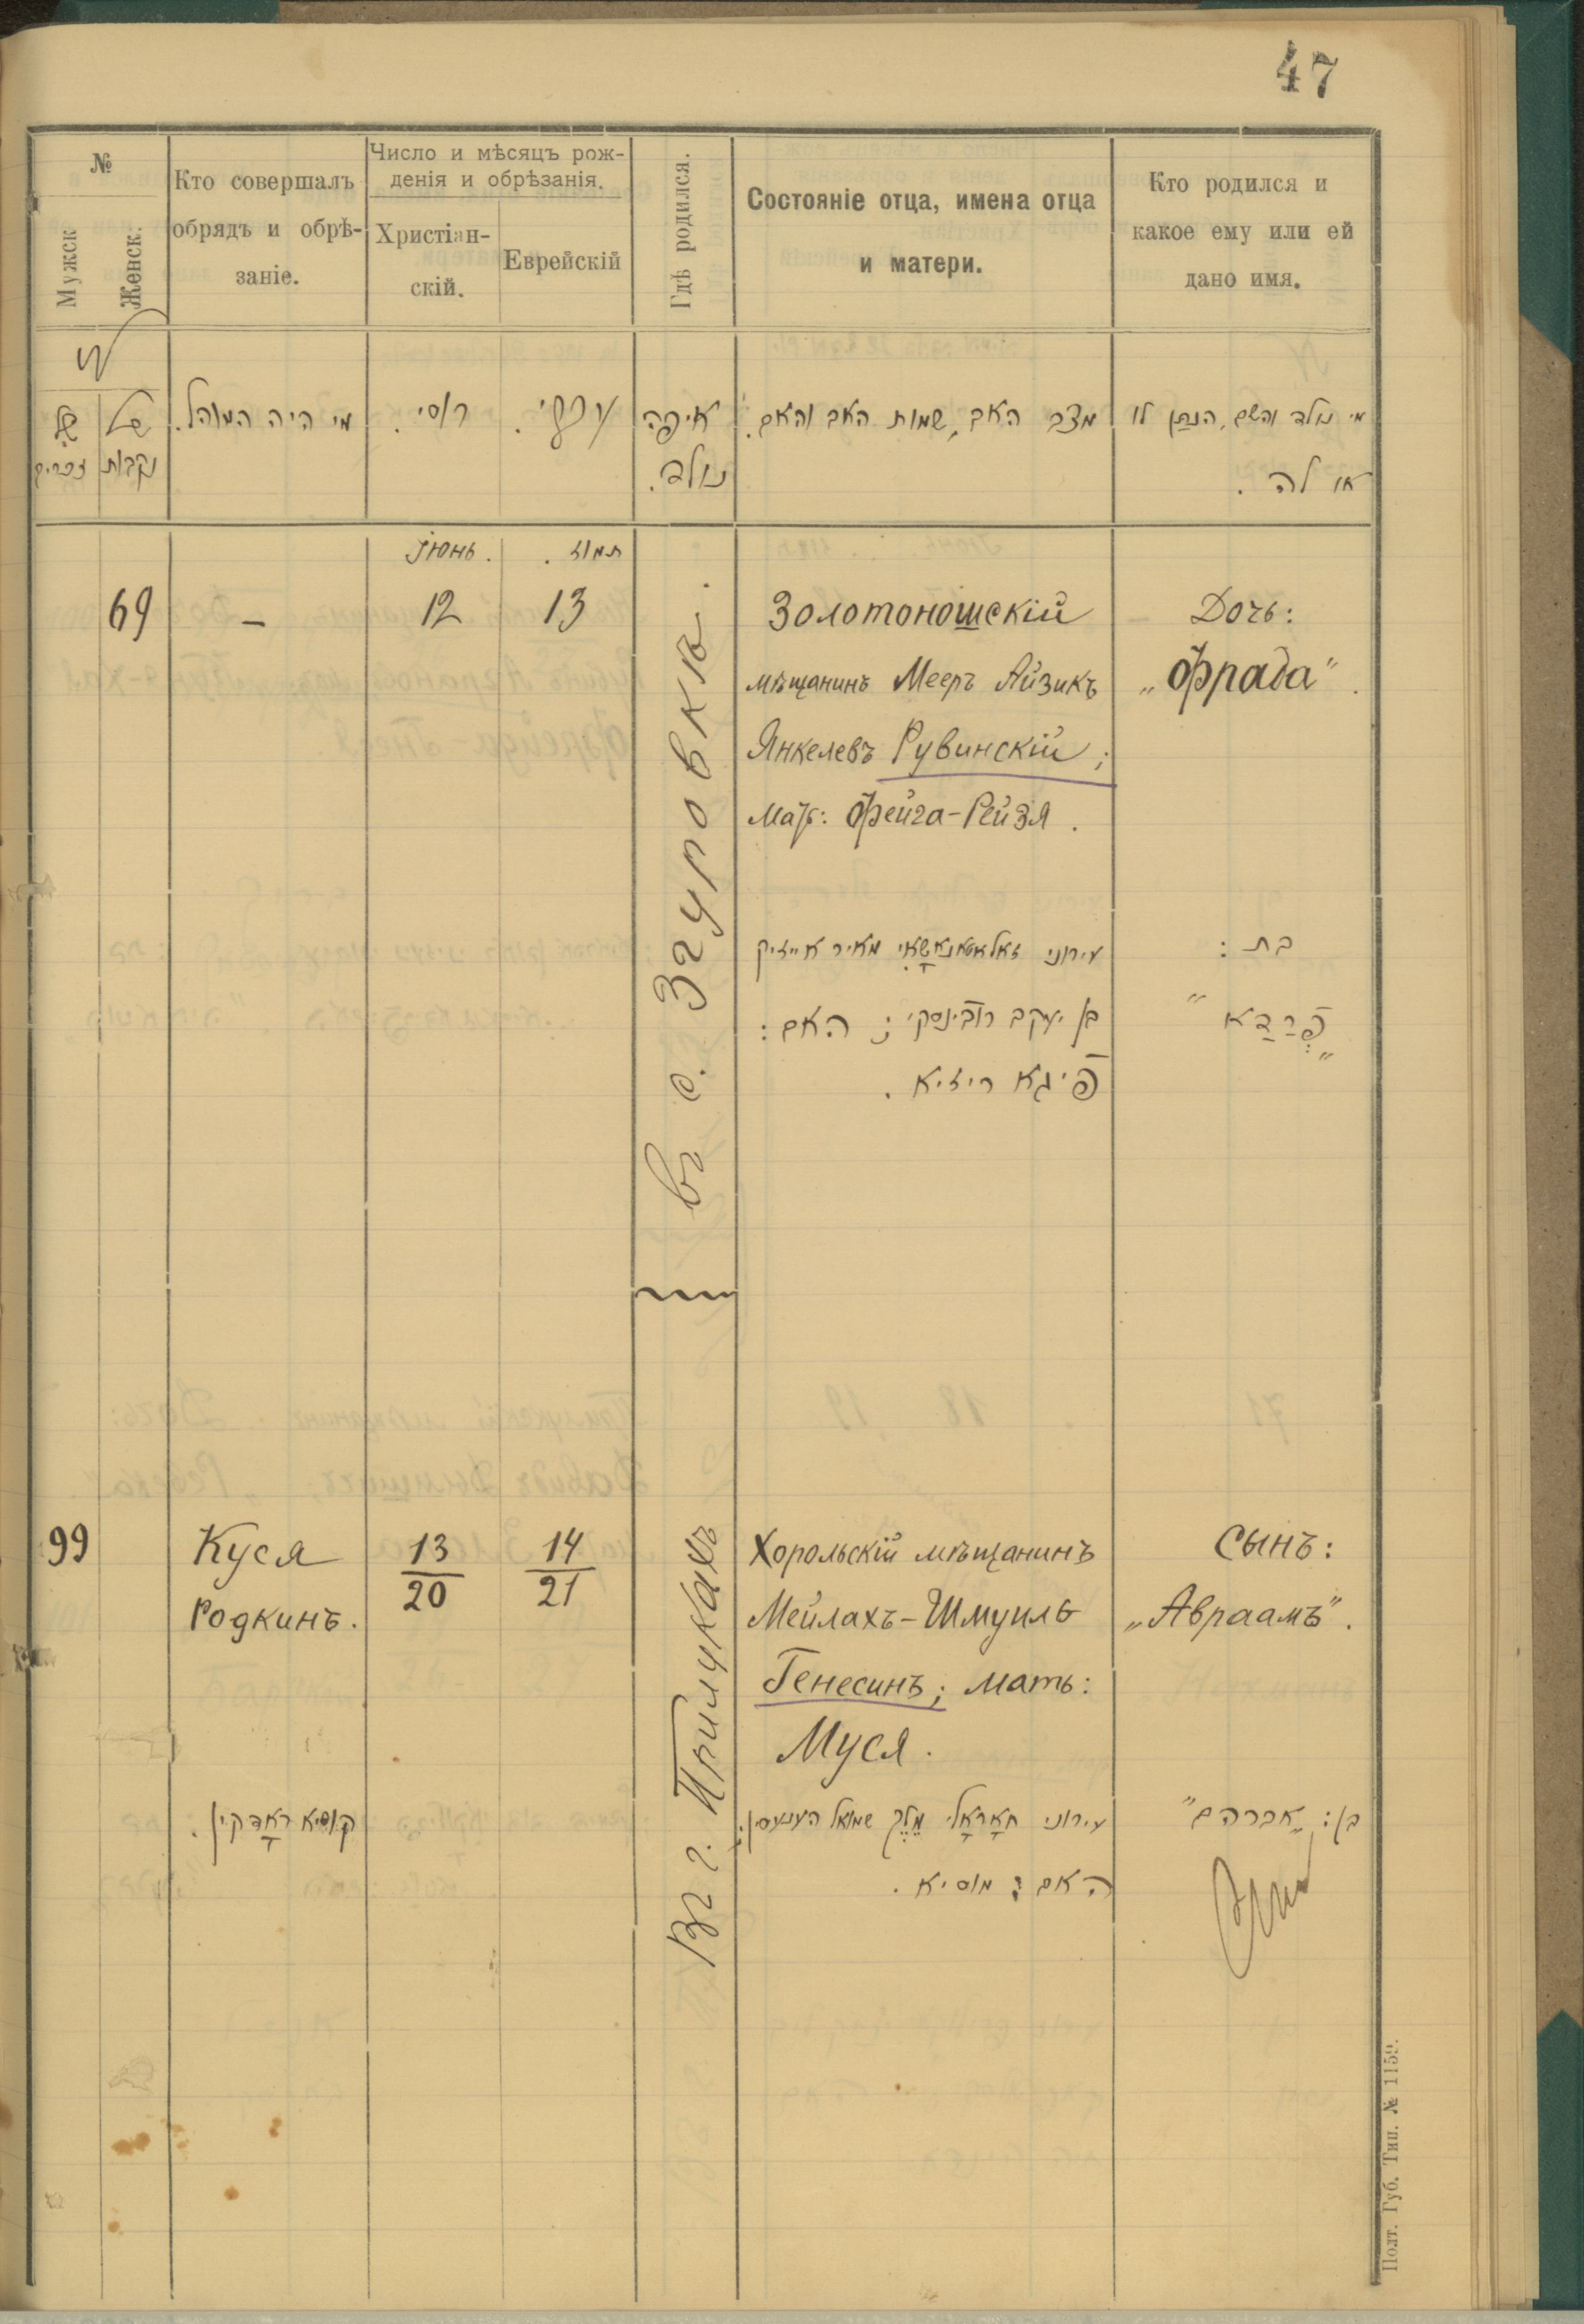 47
№
Мужск
Женск.
Кто совершалъ
обрядъ и обрѣ-
заніе.
Число и мѣсяцъ рож-
денія и обрѣзанія.
Христіан-
скій.
Еврейскій
Гдѣ родился.
Состояніе отца, имена отца
и матери.
Кто родился и
какое ему или ей
дано имя.
של
זכרים
של
נקבות
מי היה המוהל.
רוסי.
עברי.
איפה
נולד.
מצב האב, שמות האב והאם.
מי נולד והשם, הנתן לו
או לה.
Іюнь.
תמוז.
69
—
12
13
въ с. Згуровкѣ.
Золотоношскій
мѣщанинъ Мееръ Айзикъ
Янкелевъ Рувинскій;
мать: Фейга-Рейзя.
Дочь:
„Фрада".
עירוני זאלאטאנאשאי מאיר אייזיק
בן יעקב רובינסקי; האם:
פֿיגא ריזיא.
בת:
„פֿרַדַא"
99
Куся
Родкинъ.
13
20
14
21
Въ г. Прилукахъ
Хорольскій мѣщанинъ
Мейлахъ-Шмуиль
Генесинъ; мать:
Муся.
Сынъ:
„Авраамъ".
קוסיא ראָדקין.
עירוני חאָראָלי מֶלֶך שמואל הענעסין;
האם: מוסיא.
בן: „אברהם"
Полт. Губ. Тип. № 1159.